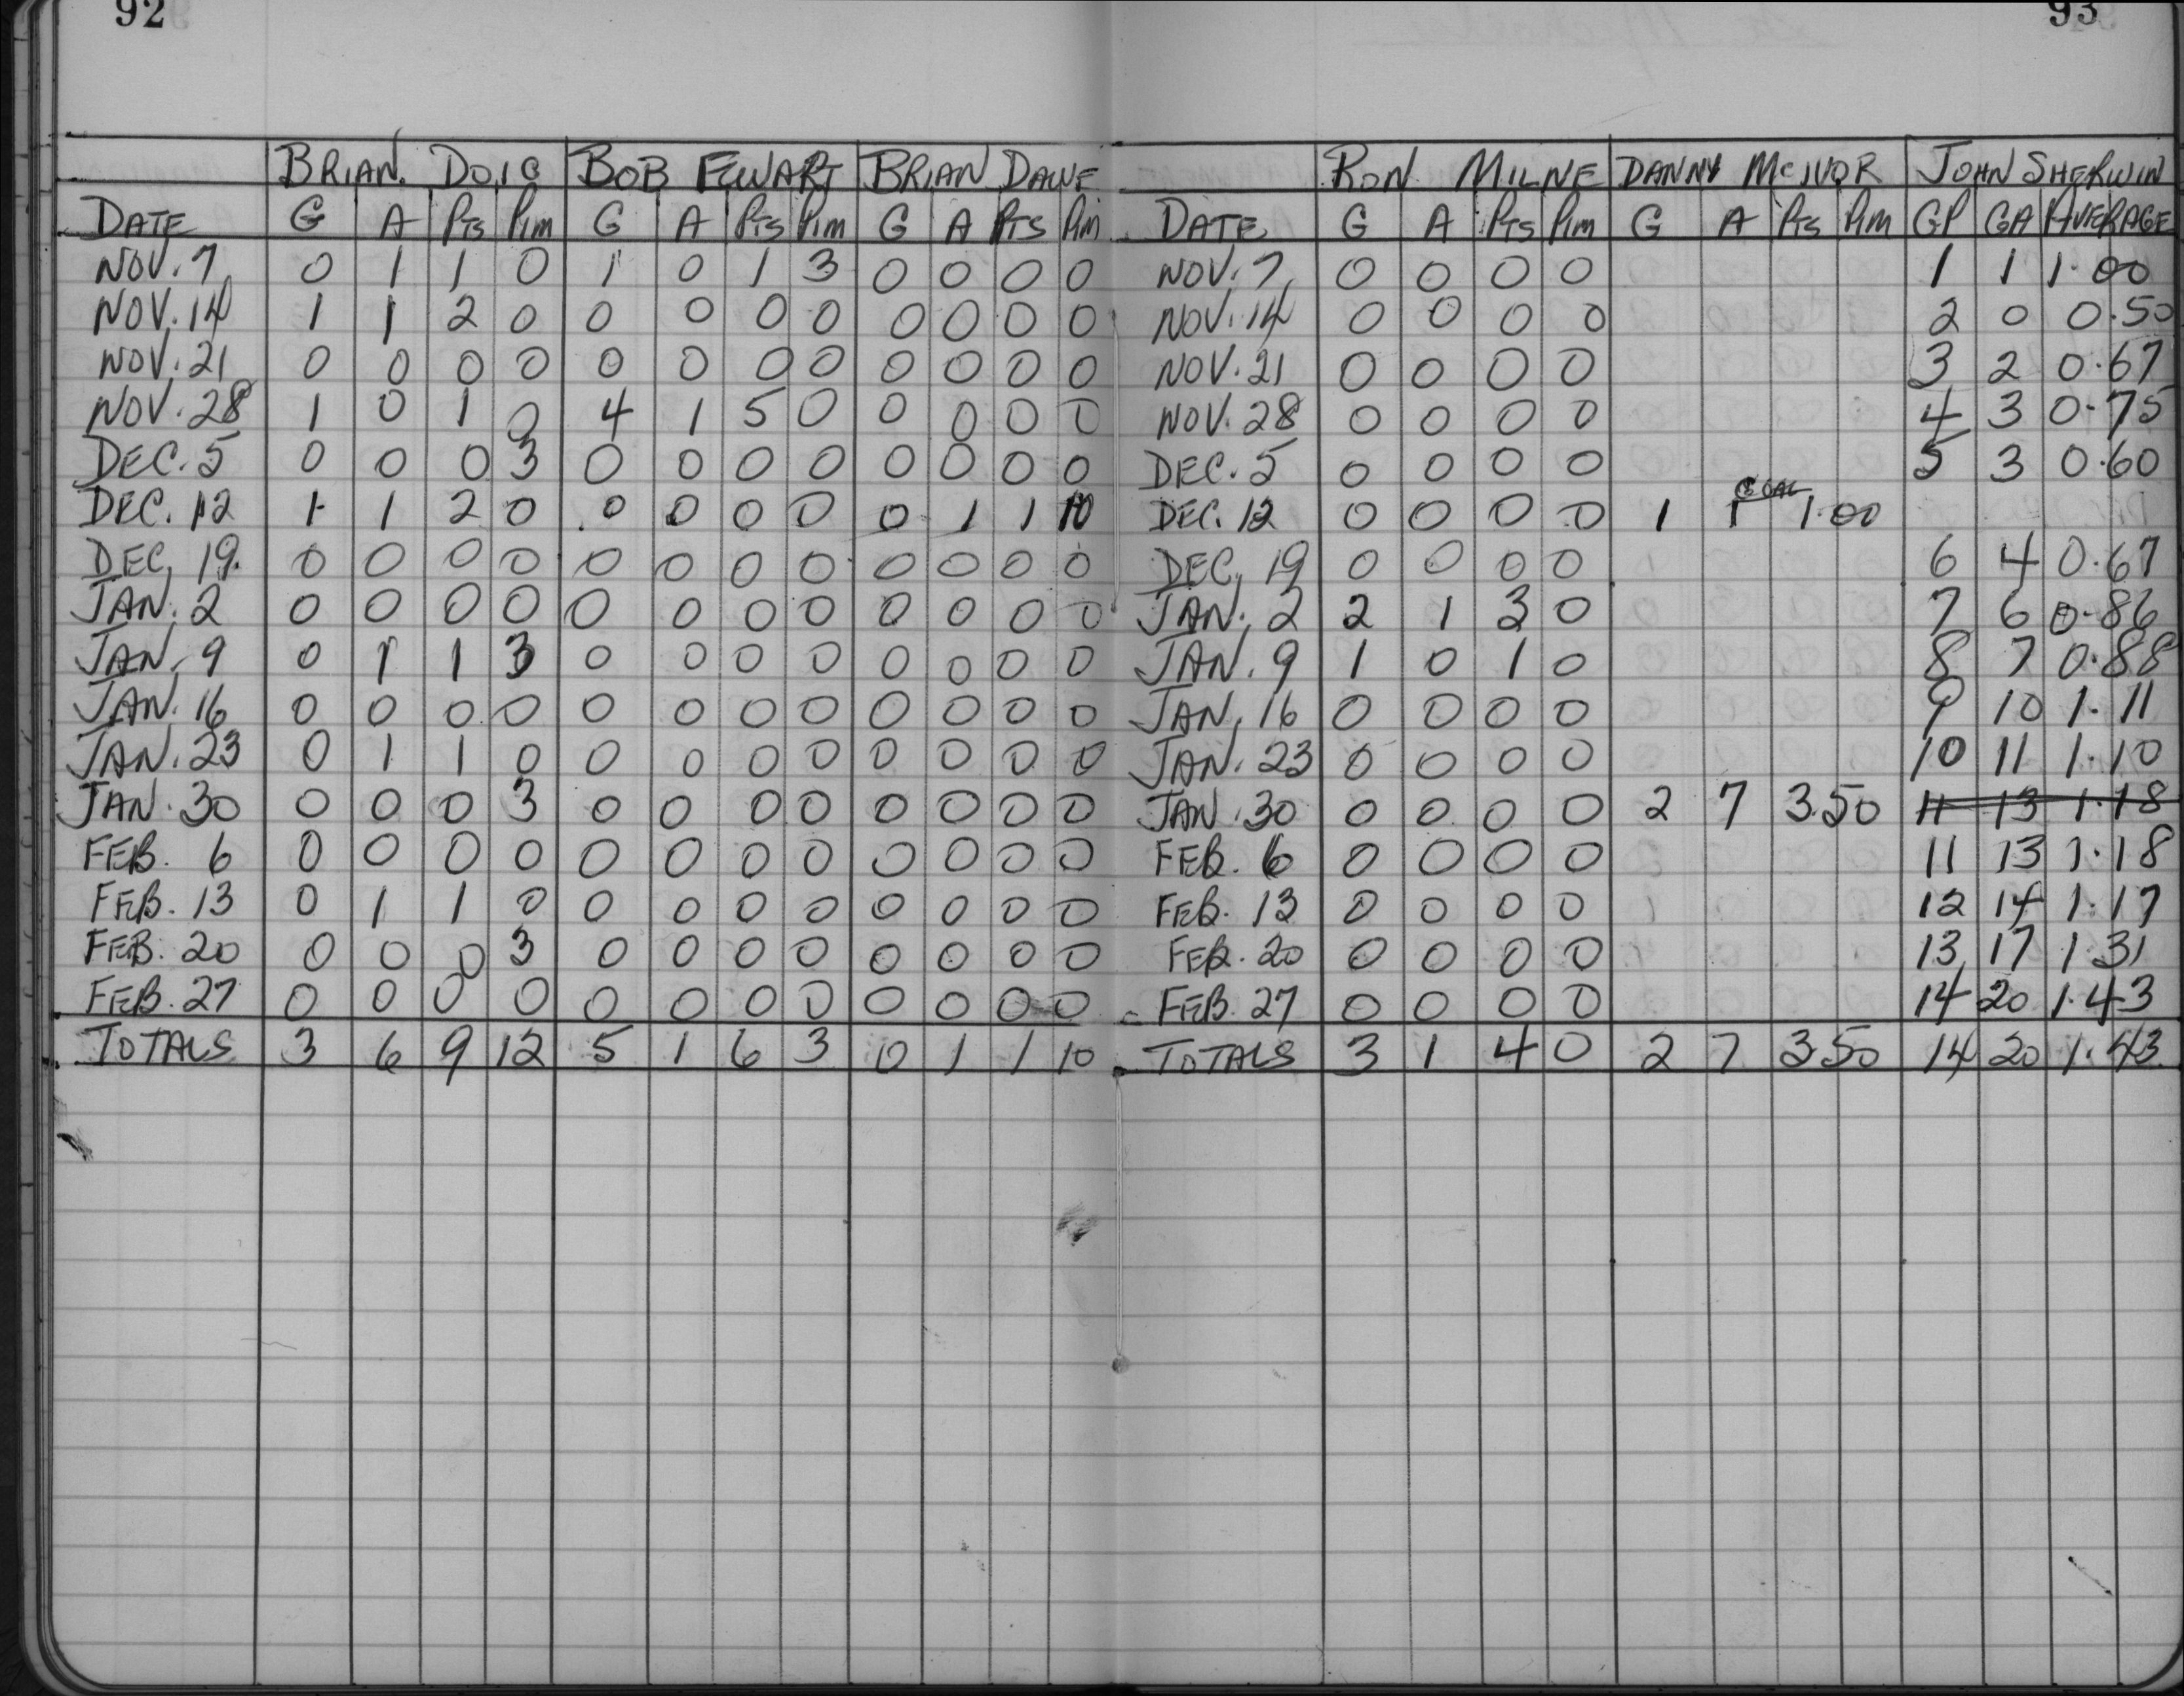 92
BRIAN. DOIG BOB EWART BRIAN DAWE
DATE G A Pts Pim G A Pts Pim G A Pts Pim
NOV. 7 0 1 1 0 1 0 1 3 0 0 0 0
NOV. 14 1 1 2 0 0 0 0 0 0 0 0 0
NOV. 21 0 0 0 0 0 0 0 0 0 0 0 0
NOV. 28 1 0 1 0 4 1 5 0 0 0 0 0
DEC. 5 0 0 0 3 0 0 0 0 0 0 0 0
DEC. 12 1 1 2 0 0 0 0 0 0 1 1 10
DEC. 19. 0 0 0 0 0 0 0 0 0 0 0 0
JAN. 2 0 0 0 0 0 0 0 0 0 0 0 0
JAN. 9 0 1 1 3 0 0 0 0 0 0 0 0
JAN. 16 0 0 0 0 0 0 0 0 0 0 0 0
JAN. 23 0 1 1 0 0 0 0 0 0 0 0 0
JAN. 30 0 0 0 3 0 0 0 0 0 0 0 0
FEB. 6 0 0 0 0 0 0 0 0 0 0 0 0
FEB. 13 0 1 1 0 0 0 0 0 0 0 0 0
FEB. 20 0 0 0 3 0 0 0 0 0 0 0 0
FEB. 27 0 0 0 0 0 0 0 0 0 0 0 0
TOTALS 3 6 9 12 5 1 6 3 0 1 1 10
93
RON MILNE DANNY MCIVOR JOHN SHERWIN
DATE G A Pts Pim G A Pts Pim GP GA AVERAGE
NOV. 7 0 0 0 0 1 1 1.00
NOV. 14 0 0 0 0 2 0 0.50
NOV. 21 0 0 0 0 3 2 0.67
NOV. 28 0 0 0 0 4 3 0.75
DEC. 5 0 0 0 0 5 3 0.60
GOAL
DEC. 12 0 0 0 0 1 1 1.00
DEC. 19 0 0 0 0 6 4 0.67
JAN. 2 2 1 3 0 7 6 0.86
JAN. 9 1 0 1 0 8 7 0.88
JAN. 16 0 0 0 0 9 10 1.11
JAN. 23 0 0 0 0 10 11 1.10
JAN. 30 0 0 0 0 2 7 3.50 11 13 1.18
FEB. 6 0 0 0 0 11 13 1.18
FEB. 13 0 0 0 0 12 14 1.17
FEB. 20 0 0 0 0 13 17 1.31
FEB. 27 0 0 0 0 14 20 1.43
TOTALS 3 1 4 0 2 7 3.50 14 20 1.43